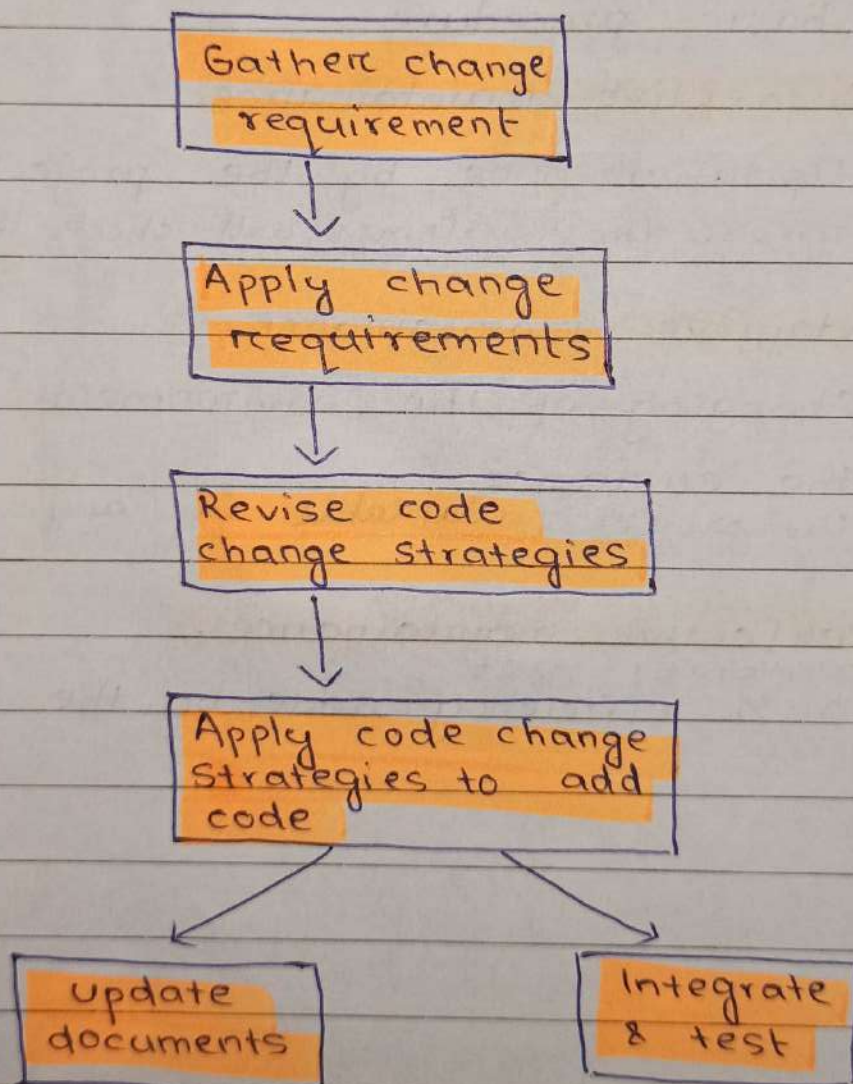 Gather change
requirement
Apply change
requirements
Revise code
change strategies
Apply code change
strategies to add
code
update
documents
Integrate
& test